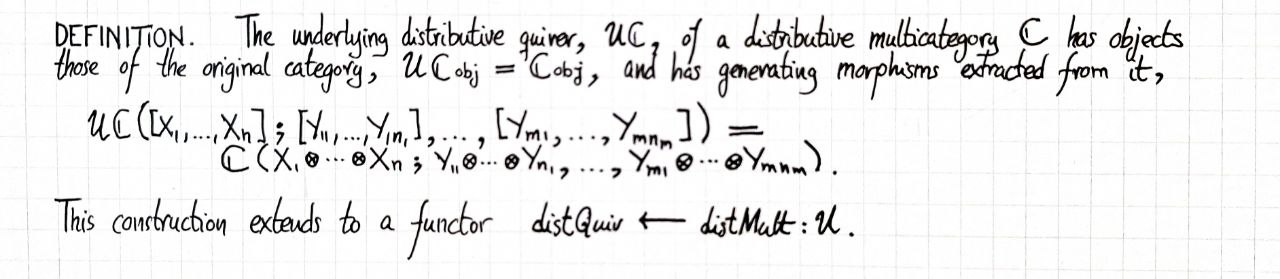 DEFINITION. The underlying distributive quiver, 𝒰ℂ, of a distributive multicategory ℂ has objects
those of the original category, 𝒰ℂobj = ℂobj, and has generating morphisms extracted from it,
𝒰ℂ([X₁,...,Xn]; [Y₁₁,...,Y₁n₁],..., [Ym₁,...,Ymnm]) =
ℂ(X₁⊗···⊗Xn ; Y₁₁⊗···⊗Yn₁, ..., Ym₁⊗···⊗Ymnm).
This construction extends to a functor distQuiv ← distMult : 𝒰.